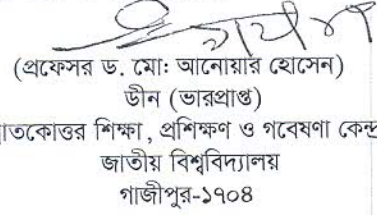 (প্রফেসর ড. মো: আনোয়ার হোসেন)
ডীন (ভারপ্রাপ্ত)
াতকোত্তর শিক্ষা, প্রশিক্ষণ ও গবেষণা কেন্দ্র
জাতীয় বিশ্ববিদ্যালয়
গাজীপুর-১৭০৪